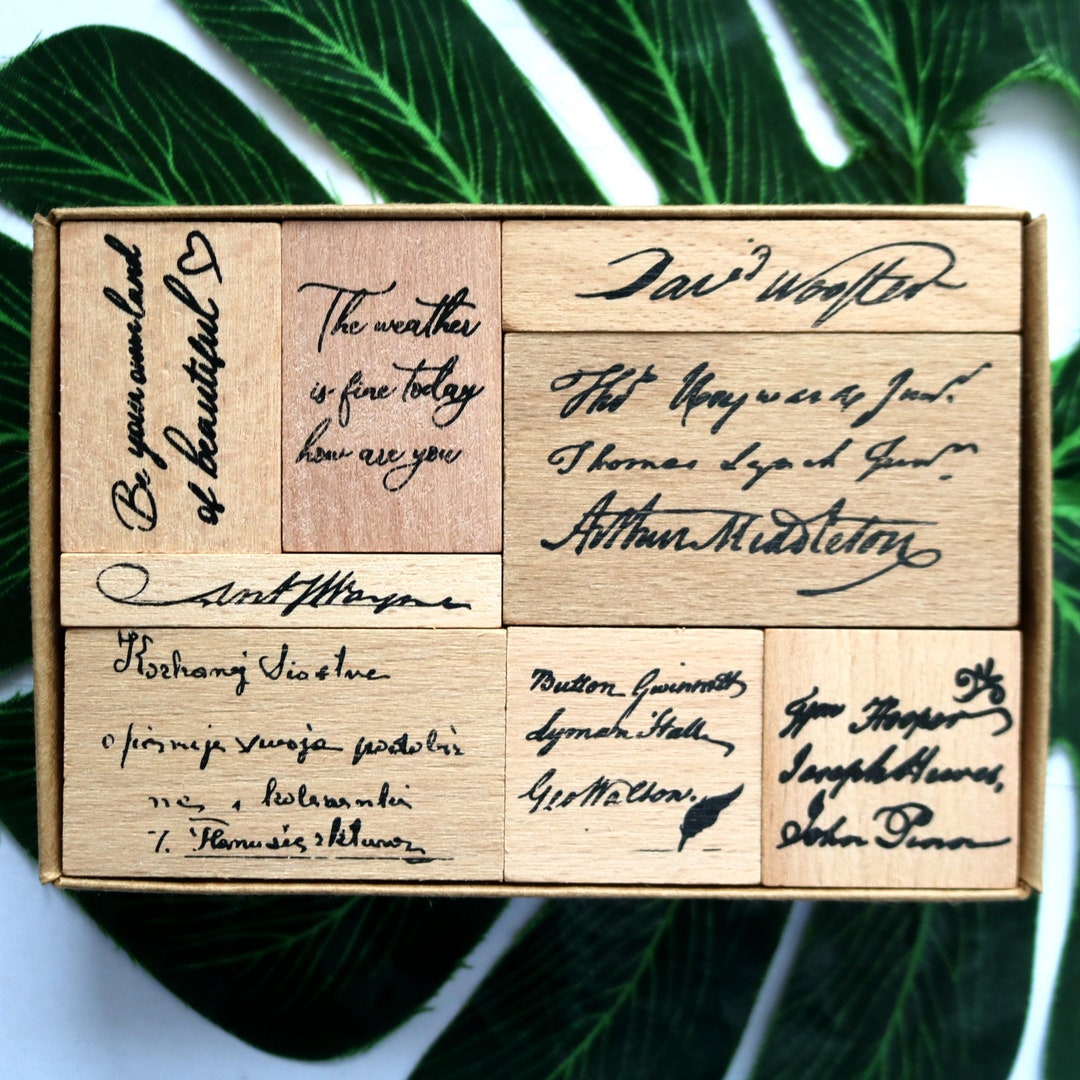 Be your own land
of beautiful
The weather
is fine today
how are you
Dav'd Wooster
Tho' Heyward Junr.
Thomas Lynch Junr.
Arthur Middleton
Ant Wayne
Kochanej Siostrze
swoja
Button Gwinnett
Lyman Hall
Geo Walton.
Wm Hooper
Joseph Hewes,
John Penn